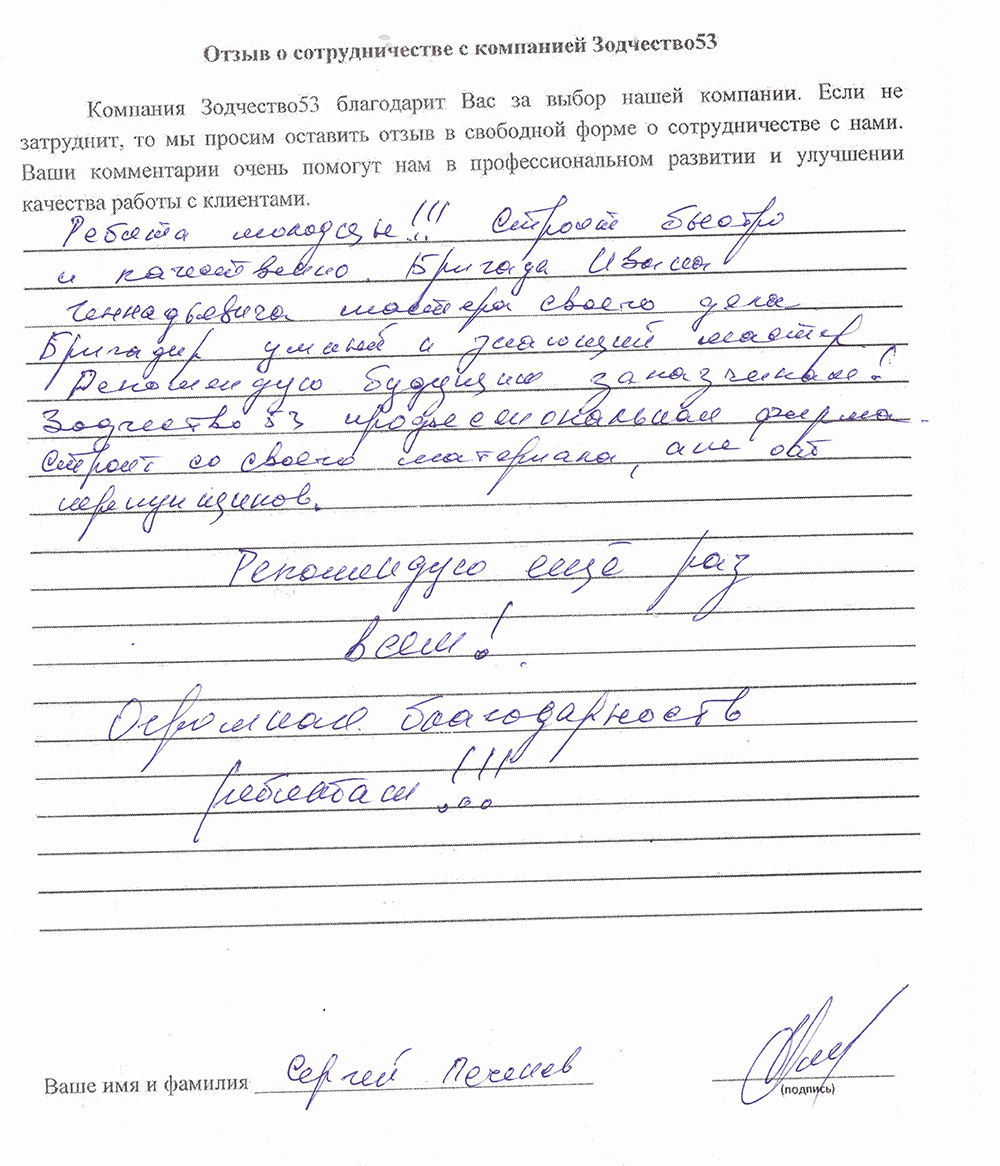 Отзыв о сотрудничестве с компанией Зодчество53
Компания Зодчество53 благодарит Вас за выбор нашей компании. Если не
затруднит, то мы просим оставить отзыв в свободной форме о сотрудничестве с нами.
Ваши комментарии очень помогут нам в профессиональном развитии и улучшении
качества работы с клиентами.
Ребята молодцы!!! Строят быстро
и качественно. Бригада Ивана
Геннадьевича мастера своего дела
Бригадир умный и знающий мастер.
Рекомендую будущим заказчикам!
Зодчество 53 профессиональная фирма.
Строит со своего материала, а не от
перекупщиков.
Рекомендую ещё раз
всем!
Огромная благодарность
ребятам!!!
Ваше имя и фамилия Сергей
(подпись)